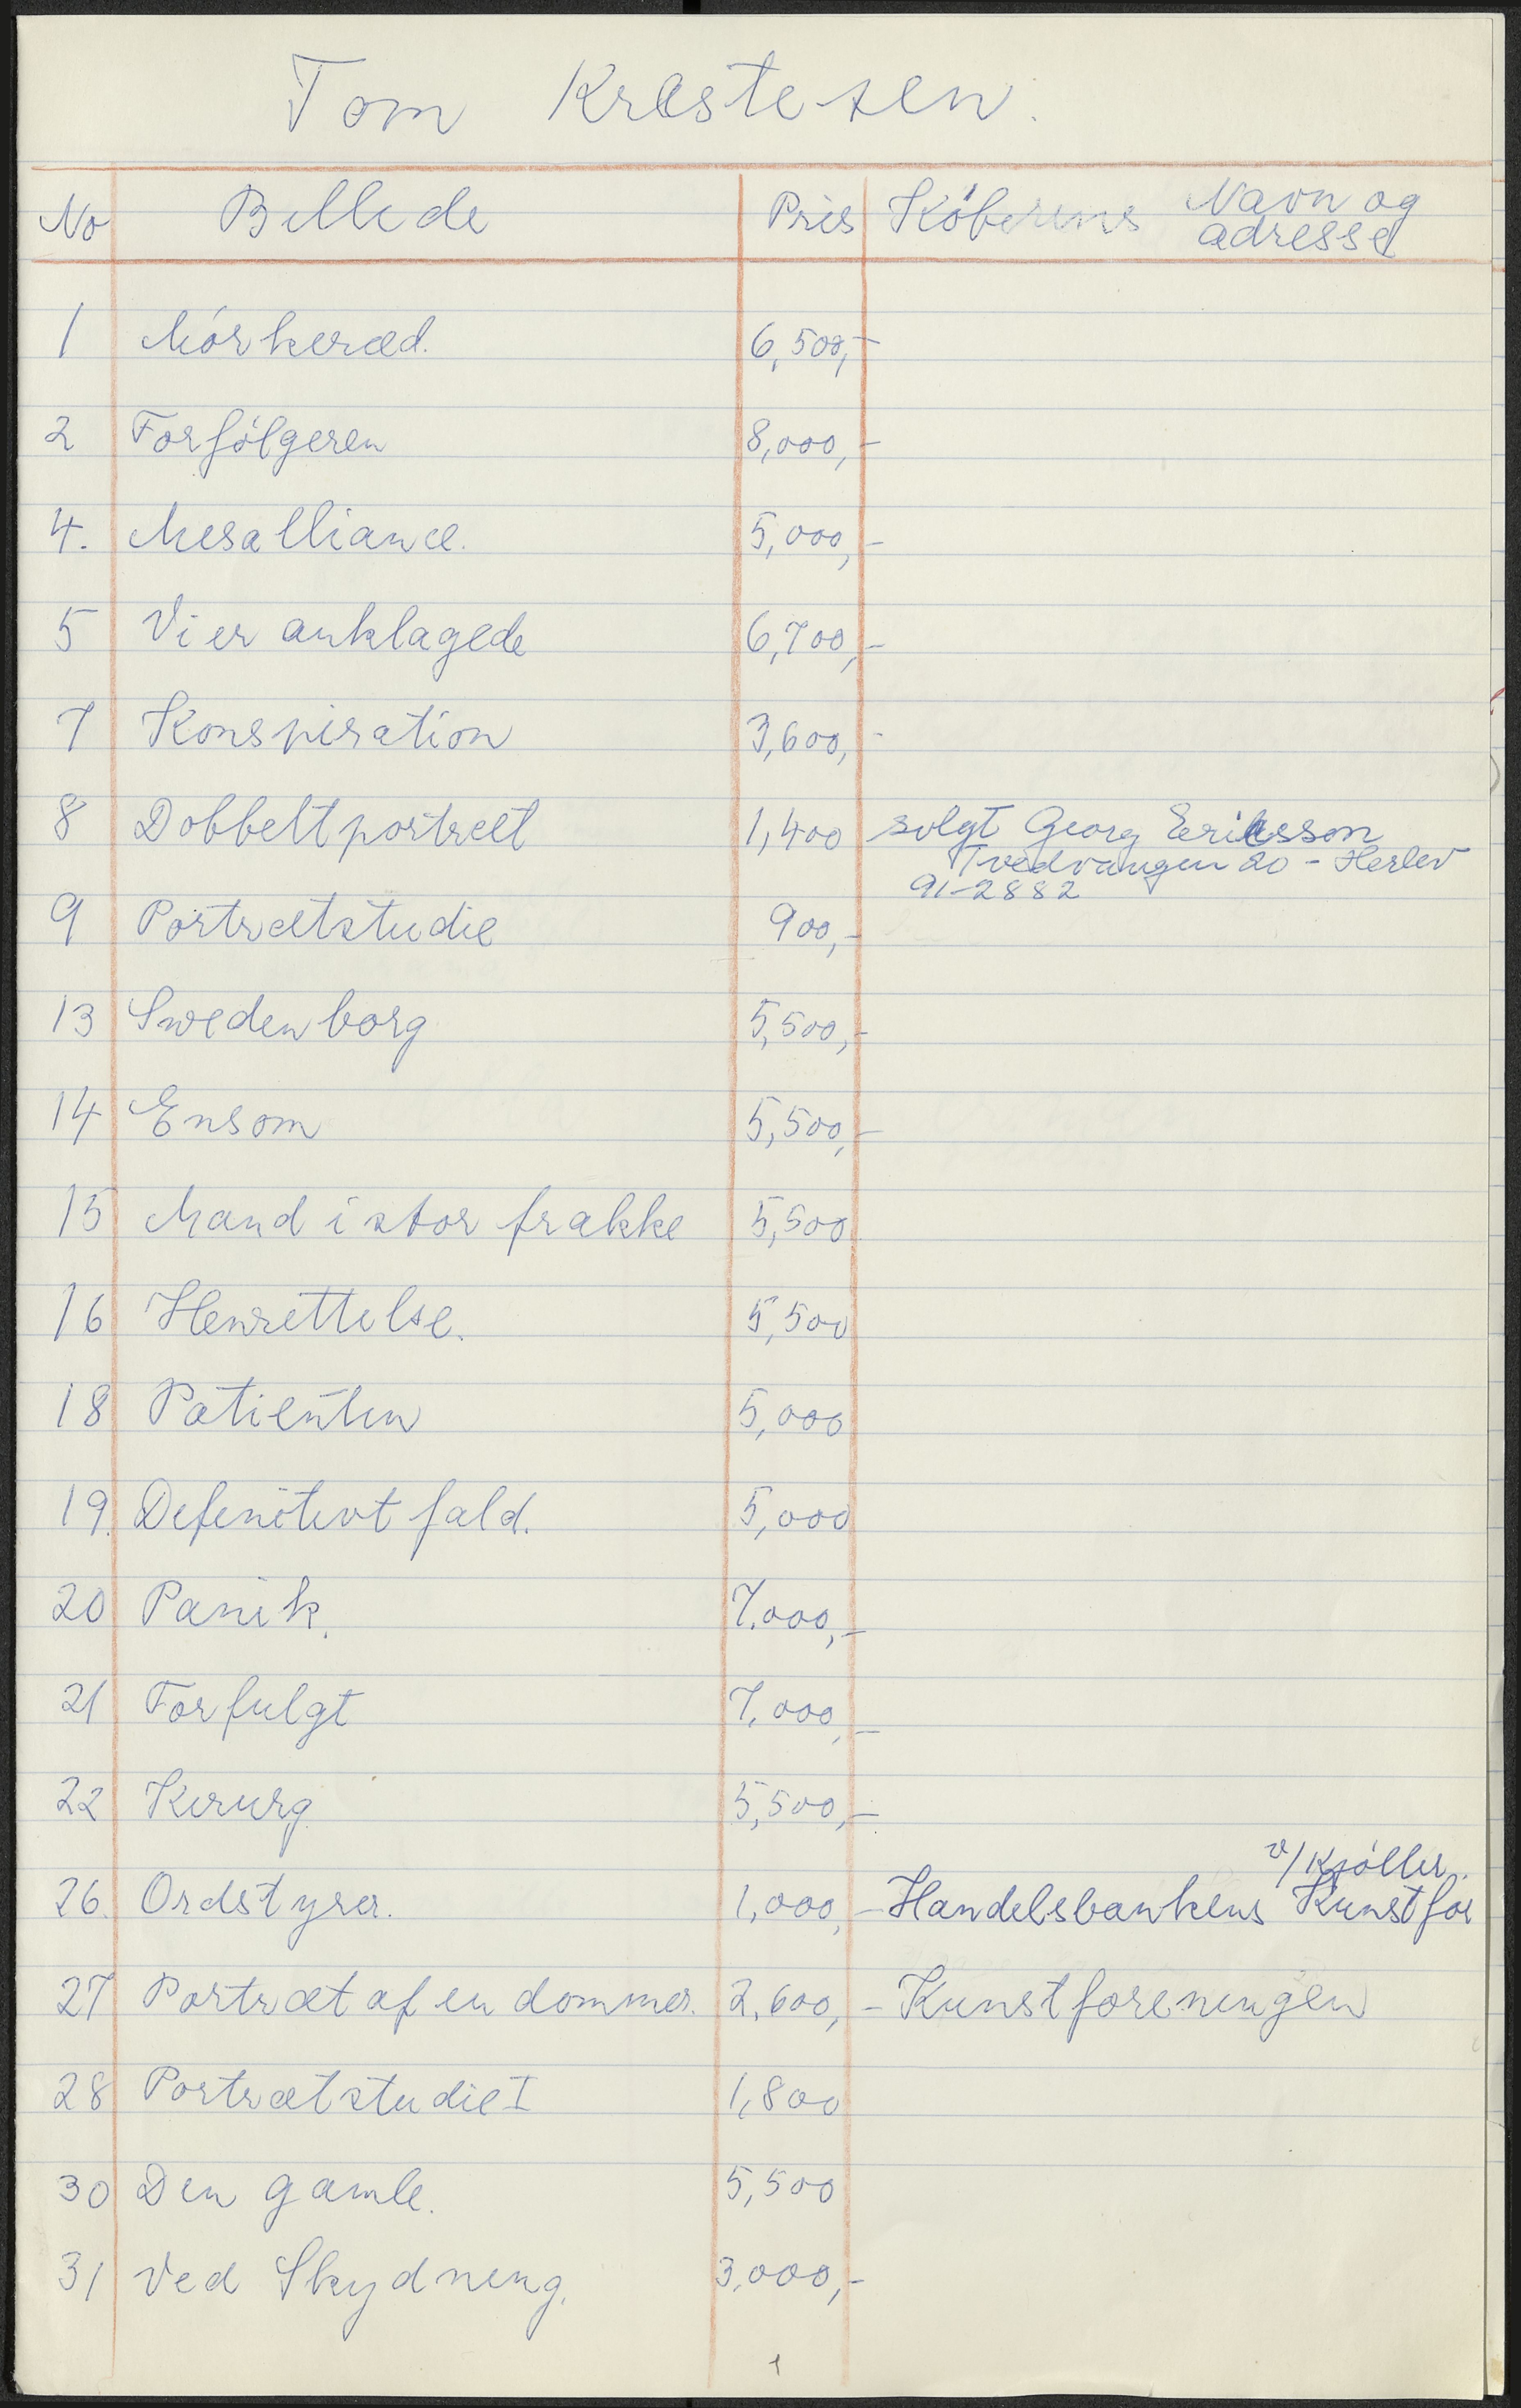 Tom Krestesen.
No Billede Pris Köberens Navn og
adresse
1 Mörkeræd. 6,500,-
2 Forfölgeren 8,000,-
4. Mesalliance. 5,000,-
5 Vi er anklagede 6,700,-
7 Konspiration 3,600,-
8 Dobbeltportræt 1,400 solgt Georg Eriksson
Tvedvangen 20 - Herlev
91-2882
9 Portrætstudie 900,-
13 Swedenborg 5,500,-
14 Ensom 5,500,-
15 Mand i stor frakke 5,500
16 Henrettelse. 5,500
18 Patienten 5,000
19. Defenitivt fald. 5,000
20 Panik. 7.000,-
21 Forfulgt 7.000,-
22 Kirurg 5,500,-
v/ Kjöller.
26. Ordstyrer. 1,000,- Handelsbankens Kunstfor
27 Portræt af en dommer. 2.600,- Kunstforeningen
28 Portrætstudie I 1,800
30 Den gamle. 5,500
31 Ved Skydning. 3.000,-
1